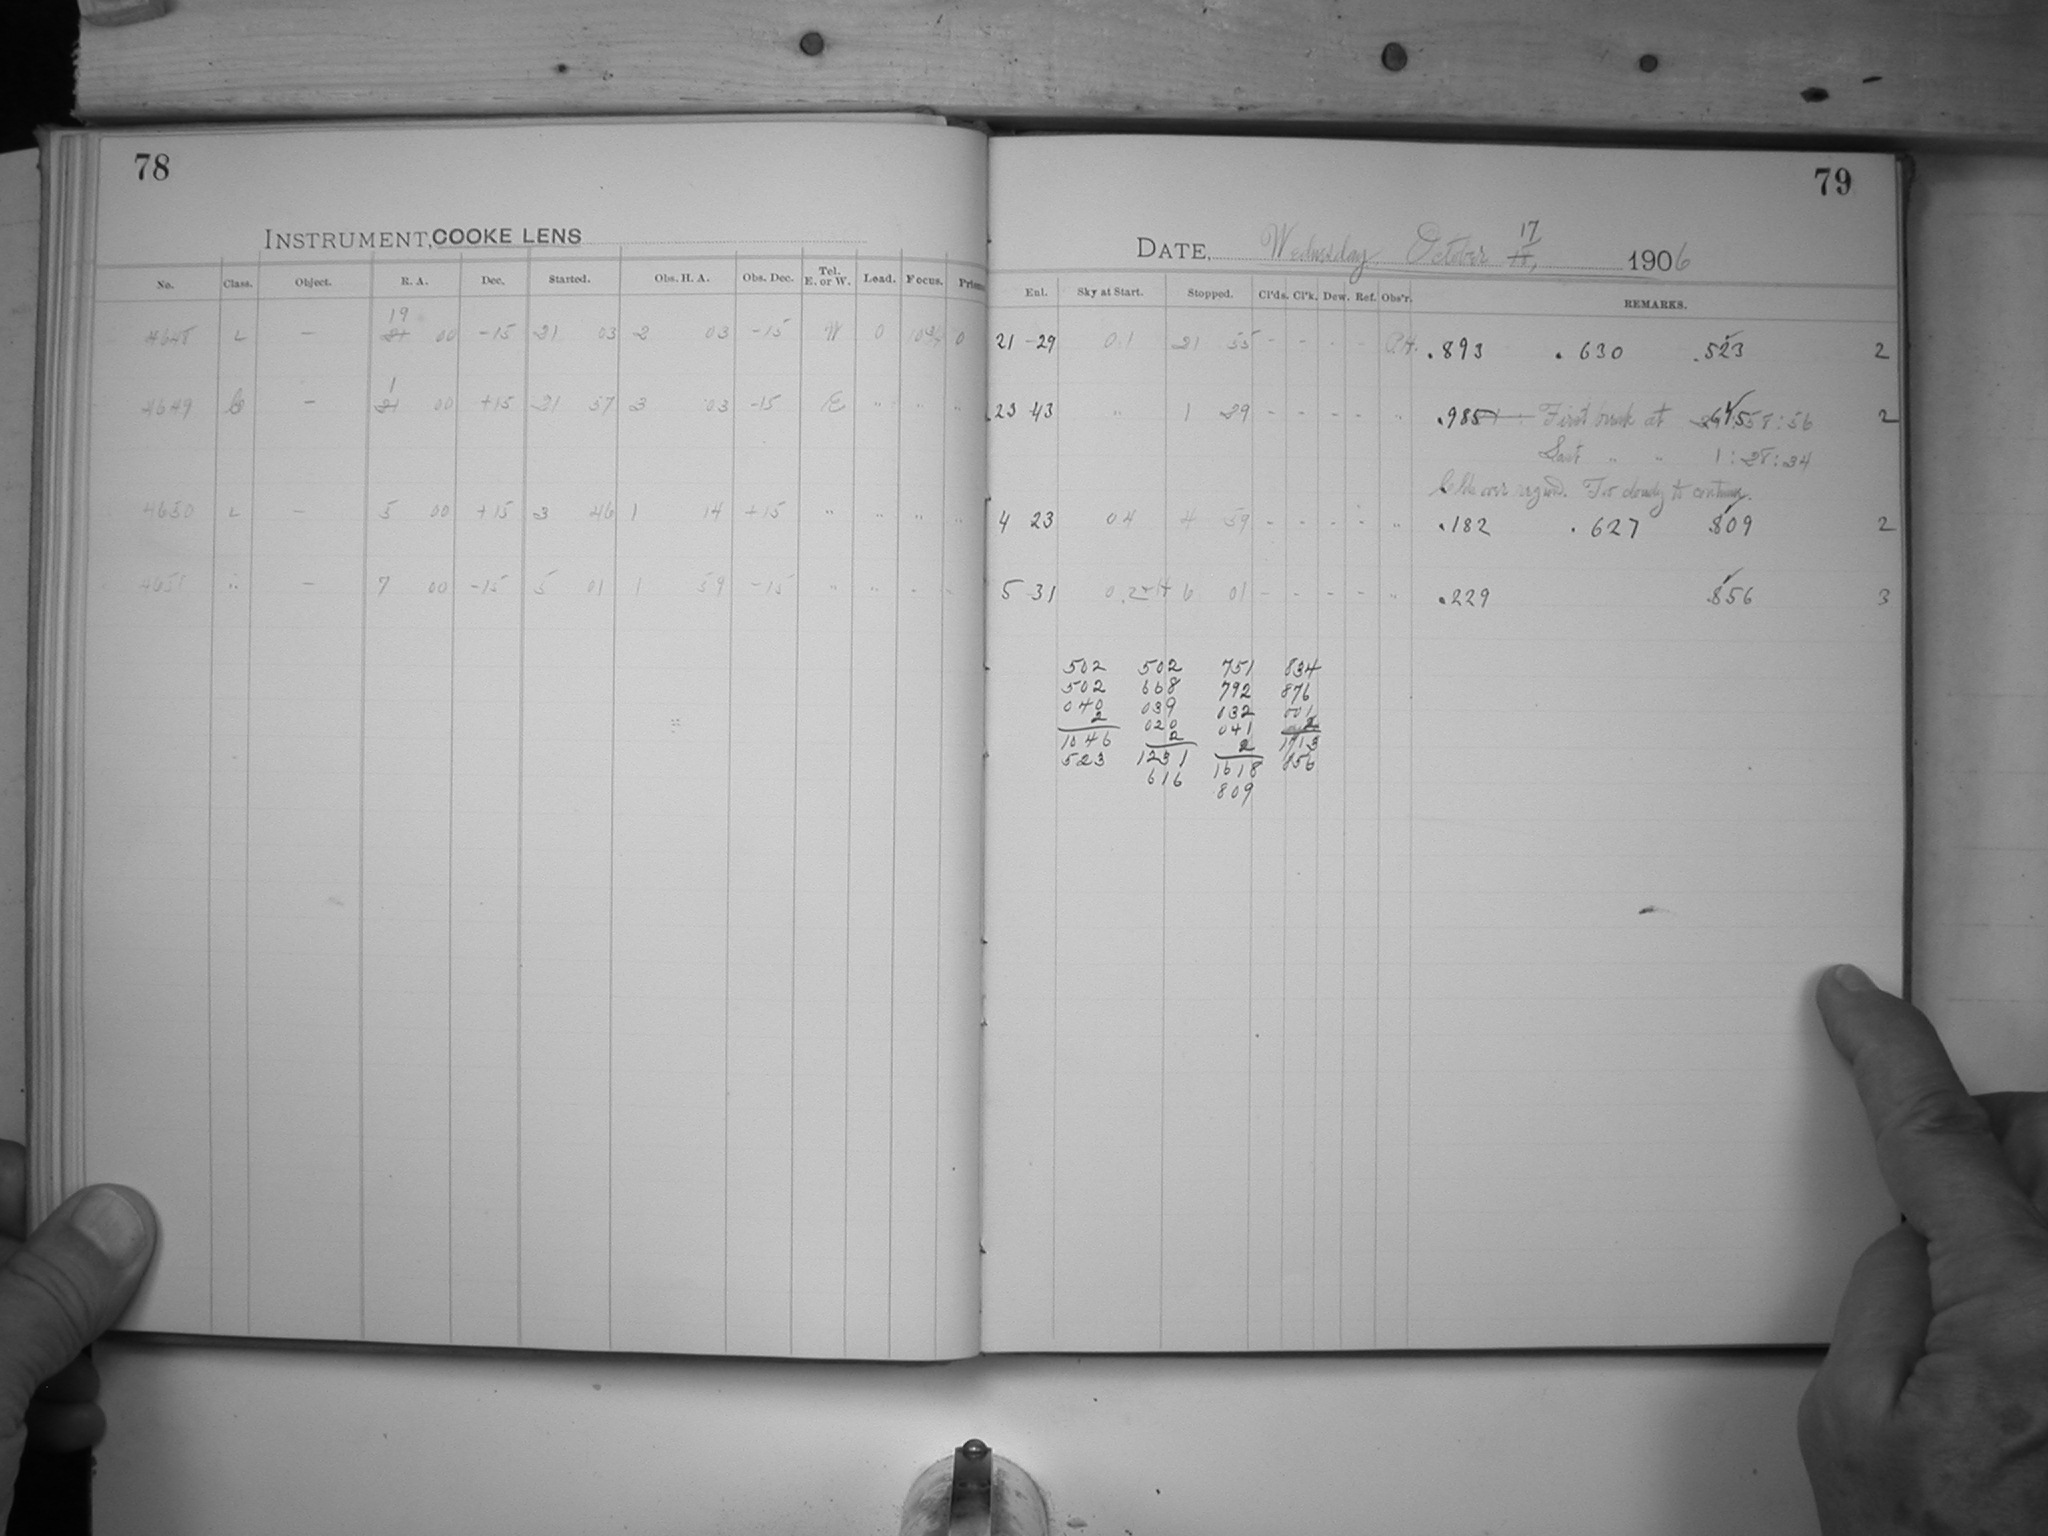 78
INSTRUMENT, COOKE LENS
No. Class. Object. R. A. Dec. Started. Obs. H. A. Obs. Dec. Tel. E. or W. Lead. Focus. Prisms
19
4648 L — 21 00 -15 21 03 2 03 -15 W 0 0
1
4649 — 21 00 +15 21 57 3 03 -15 E " " "
4650 L — 5 00 +15 3 46 1 14 +15 " " " "
4651 " — 7 00 -15 5 01 1 59 -15 " " " "
79
17
DATE, Wednesday October 1906
Enl. Sky at Start. Stopped. Cl'ds. Cl'k. Dew. Ref. Obs'r. REMARKS.
21 -29 0.1 21 55 - - - - .893 .630 .523 2
23 43 " 1 29 - - - - " .985 First break at 58:56 2
Last " " 1:28:34
over region. Too cloudy to continue.
4 23 0.4 4 59 - - - - " .182 .627 .809 2
5 31 6 01 - - - - " .229 .856 3
502 502 751 834
502 668 792 876
040 039 032 001
2 020 041 2
1046 2 2 1713
523 1231 1618 856
616 809